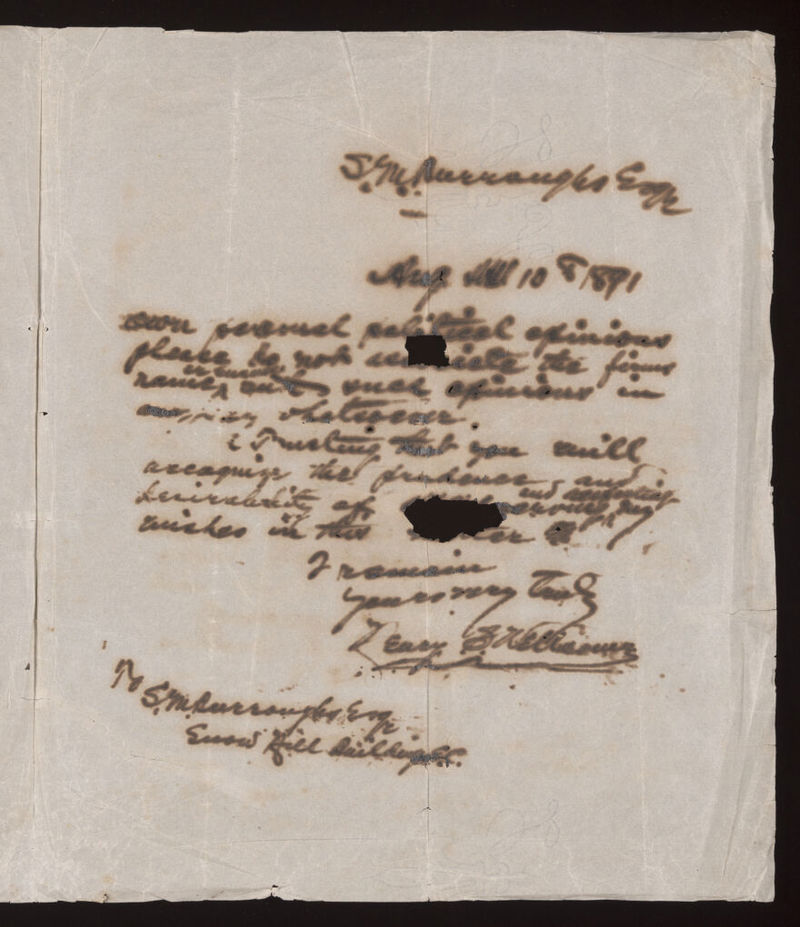 S. M. Burroughs Esqr
Aug 10th 1891
own personal political opinions
please do not associate the firms
name or mine with such opinions in
any way whatsoever.
Trusting that you will
recognize the prudence and
desirability of and respecting
observing my
wishes in this matter
I remain
yours very truly
Henry S Wellcome
To S. M. Burroughs Esqr
Snow Hill Buildings E.C.